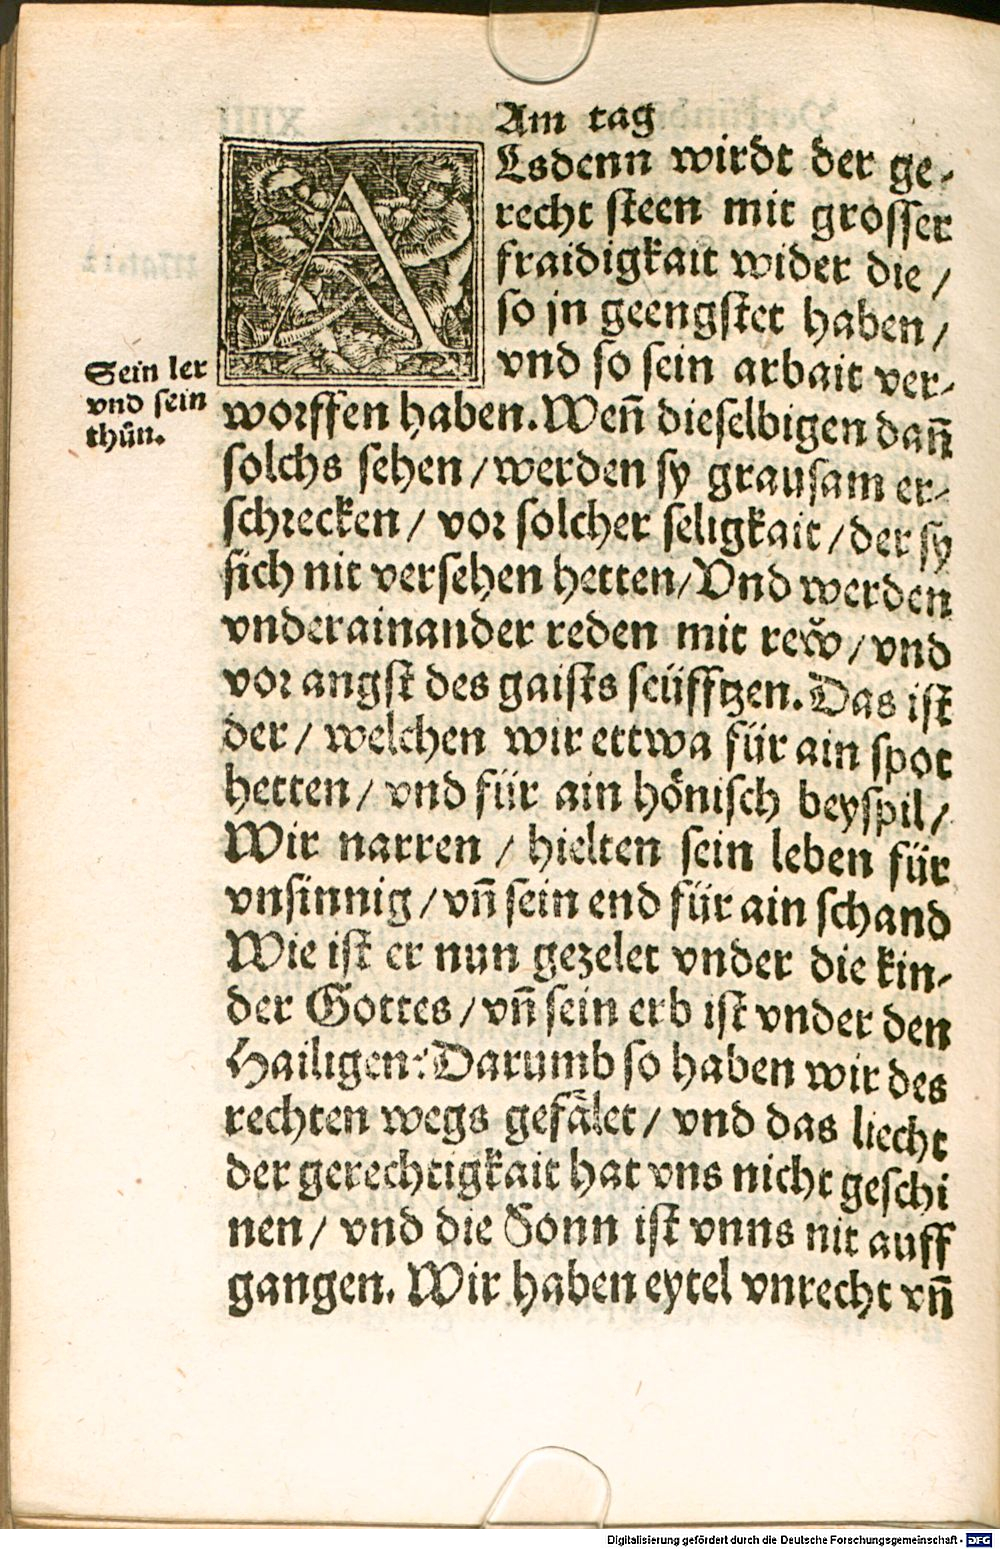 Am tag
ALsdenn wirdt der ge-
recht steen mit grosser
fraidigkait wider die /
so jn geengstet haben /
vnd so sein arbait ver-
Sein ler
vnd sein
thůn.
worffen haben. Weñ dieselbigen dañ
solchs sehen / werden sy grausam er-
schrecken / vor solcher seligkait / der sy
sich nit versehen hetten / Vnd werden
vnderainander reden mit rew̌ / vnd
vor angst des gaists seüfftzen. Das ist
der / welchen wir ettwa für ain spot
hetten / vnd für ain hönisch beyspil /
Wir narren / hielten sein leben für
vnsinnig / vñ sein end für ain schand
Wie ist er nun gezelet vnder die kin-
der Gottes / vñ sein erb ist vnder den
Hailigen: Darumb so haben wir des
rechten wegs gefälet / vnd das liecht
der gerechtigkait hat vns nicht geschi
nen / vnd die Sonn ist vnns nit auff
gangen. Wir haben eytel vnrecht vñ
Digitalisierung gefördert durch die Deutsche Forschungsgemeinschaft - DFG